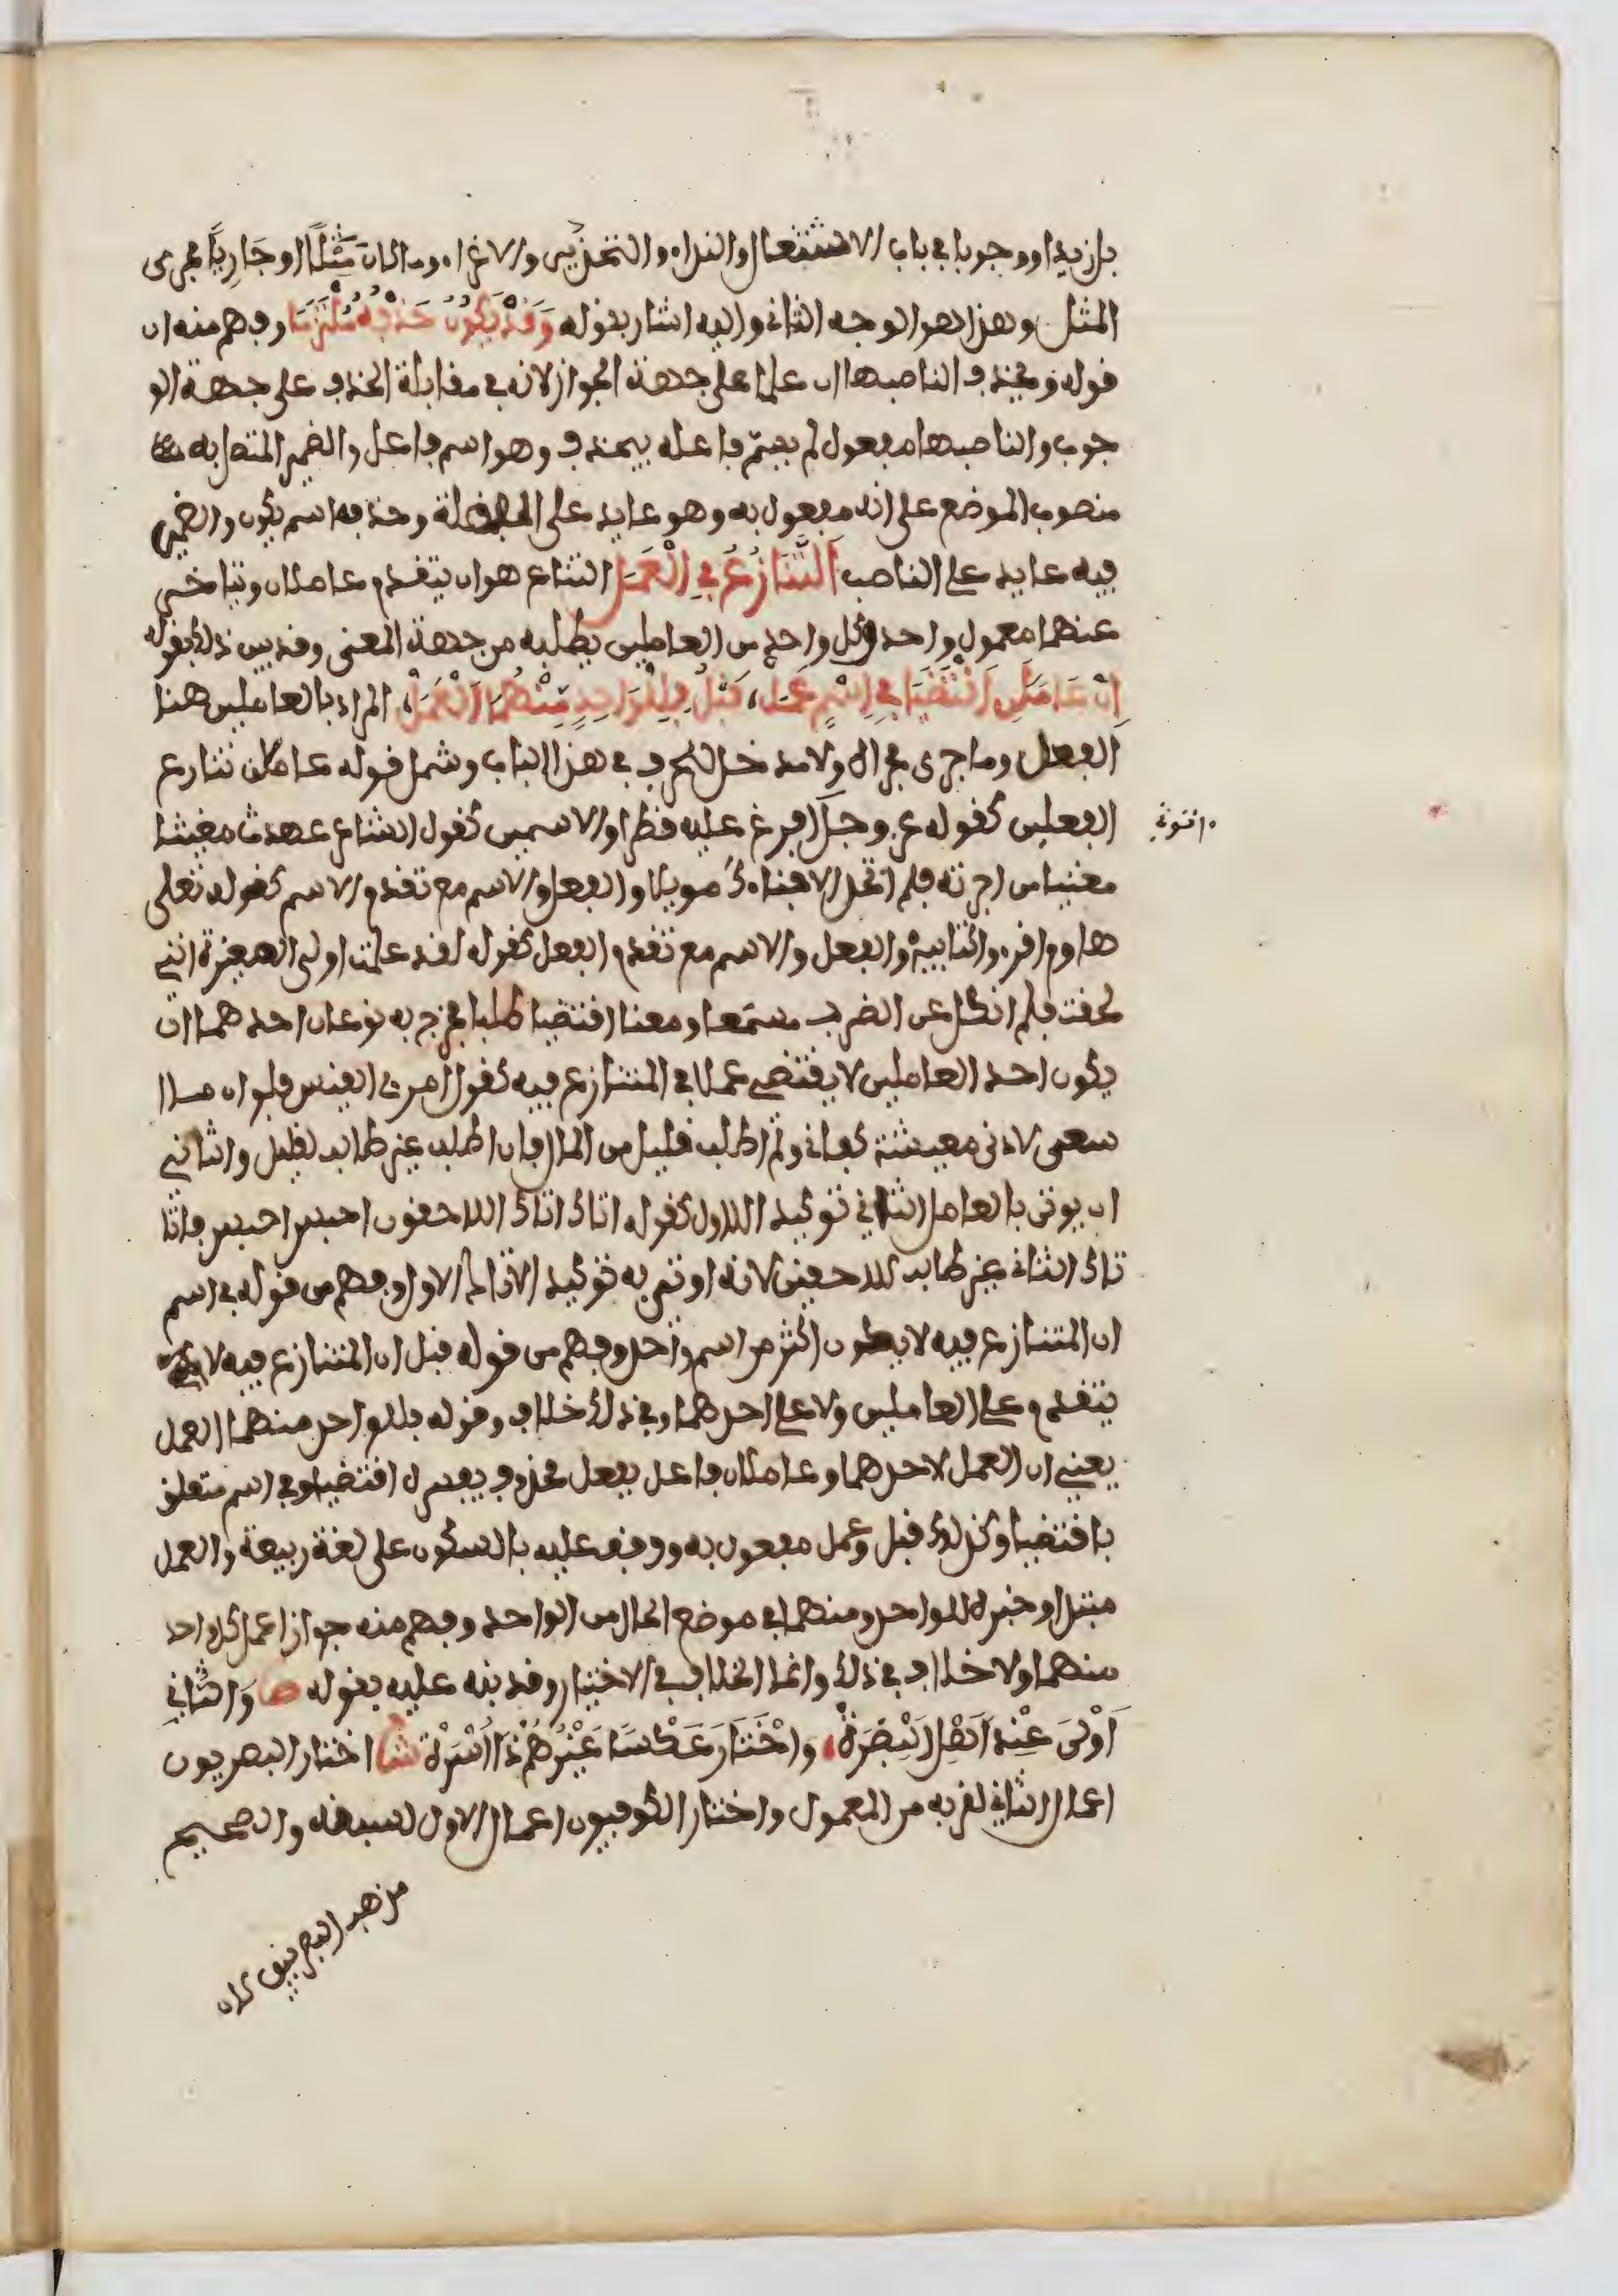 بل زيدا ووجوبا في باب الاشتغال والنداء والتحذير والاغراء وما كان مَثَلًا او جَارِيًا مجرى
المثل وهذا هو الوجه الثاني واليه اشار بقوله وَقَدْ يَكُونُ حَذْفُهُ مُلْتَزَمَا وفهم منه ان
قوله ويحذف الناصبها ان علما على جهة الجواز لانه في مقابلة الحذف على جهة الو
جوب والناصبها مفعول لم يسمّ فاعله بيحذف وهو اسم فاعل والضمير المتصل به
منصوب الموضع على انه مفعول به وهو عايد على الفضلة وحذفه اسم يكون والضمير
فيه عايد على الناصب اَلتَّنَازُعُ فِي الْعَمَلِ التنازع هو ان يتقدم عاملان ويتاخر
عنهما معمول واحد وكل واحد من العاملين يطلبه من جهة المعنى وقد بين ذلك بقوله
انْ عَامِلَانِ اقْتَضَيَا فِي اسْمٍ عَمَلْ، قَبْلُ فَلِلْوَاحِدِ مِنْهُمَا الْعَمَلْ، المراد بالعاملين هنا
الفعل وما جرى مجراه ولا مدخل للحرف في هذا الباب وشمل قوله عاملان تنازع
الفعلين كقوله عز وجل افرغ عليه قطرا والاسمين كقول الشاعر عهدت مغيثا
مغنيا من اجرته فلم اتخذ الا فناءك مويلا والفعل والاسم مع تقدم الاسم كقوله تعلى
هاوم اقرءوا كتابيه والفعل والاسم مع تقدم الفعل كقوله لقد علمت اولى المغيرة انني
لحقت فلم انكل عن الضرب مسمعا ومعنا اقتضيا طلبا فخرج به نوعان احدهما ان
يكون احد العاملين لا يقتضي عملا في المتنازع فيه كقول امرئ القيس فلو ان ما
اسعى لادنى معيشة كفاني ولم اطلب قليل من المال فان اطلب غير طالب لقليل والثاني
ان يوتى بالعامل الثاني توكيد اللاول كقوله اتاك اتاك اللاحقون احبس احبس فاتا
تاك الثاني غير طالب للاحقين لانه اوتي به توكيد الاتاك الاول وفهم من قوله في اسم
ان المتنازع فيه لا يكون اكثر من اسم واحد وفهم من قوله قبل ان المتنازع فيه لا
يتقدم على العاملين ولا على احدهما وفي ذلك خلاف وقوله فللواحد منهما العمل
يعني ان العمل لاحدهما وعاملان فاعل بفعل محذوف يفسره اقتضيا وفي اسم متعلق
باقتضيا وكذلك قبل وعمل مفعول به ووقف عليه بالسكون على لغة ربيعة والعمل
مبتدا وخبره للواحد ومنهما في موضع الحال من الواحد وفهم منه جواز اعمال كل واحد
منهما ولا خلاف في ذلك وانما الخلاف في الاختيار وقد نبه عليه بقوله ص وَالثَّانِي
اَوْلَى عِنْدَ اَهْلِ الْبَصْرَهْ، وَاخْتَارَ عَكْسًا غَيْرُهُمْ ذَا اُسْرَهْ ش اختار البصريون
اعمال الثاني لقربه من المعمول واختار الكوفيون اعمال الاول لسبقه والصحيح
مذهب البصريين لان